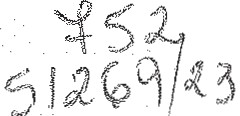 752
51269/23